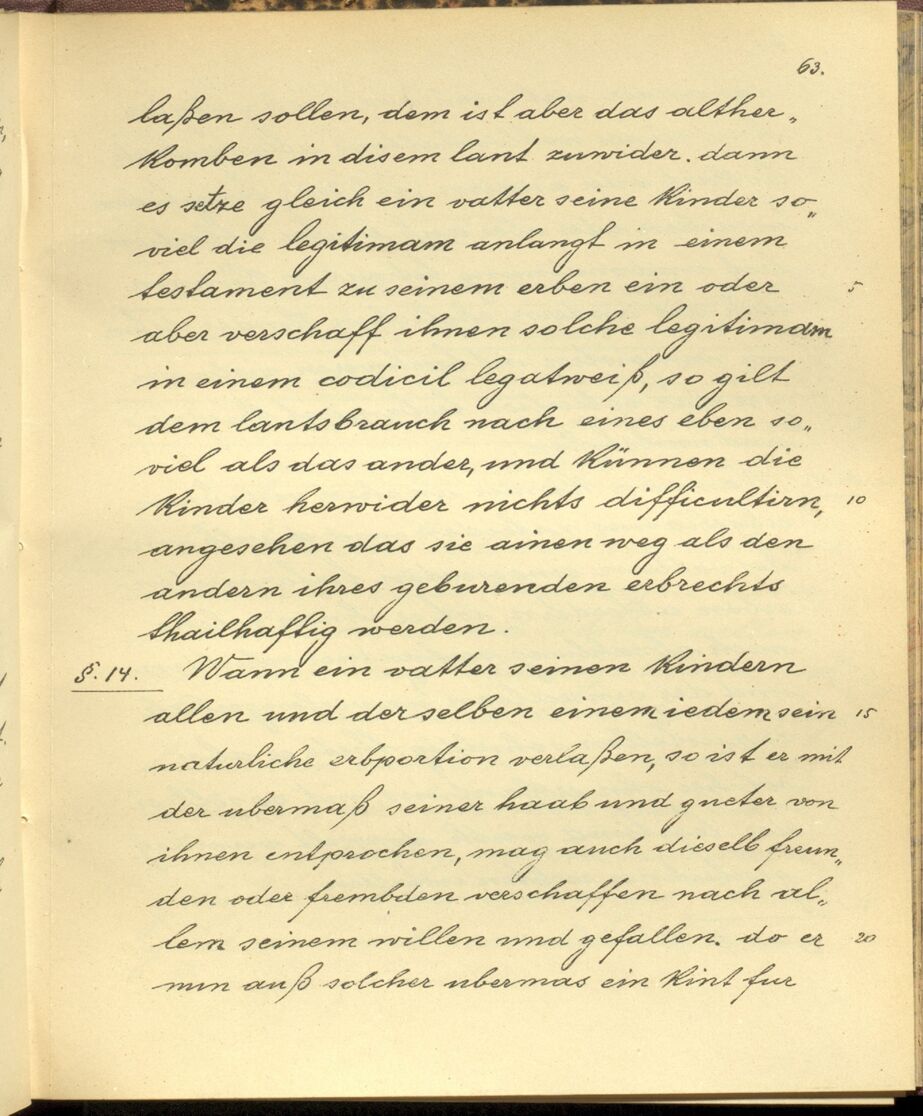 63.
laßen sollen, dem ist aber das alther„
komben in disem lant zuwider. dann
es setze gleich ein vatter seine kinder so„
viel die legitimam anlangt in einem
testament zu seinem erben ein oder 5
aber verschaff ihnen solche legitimam
in einem codicil legatweiß, so gilt
dem lantsbrauch nach eines eben so„
viel als das ander, und künnen die
kinder herwider nichts difficultirn, 10
angesehen das sie ainen weg als den
andern ihres geburenden erbrechts
thailhafftig werden.
§. 14. Wann ein vatter seinen kindern
allen und der selben einem iedem sein 15
naturliche erbportion verlaßen, so ist er mit
der ubermaß seiner haab und gueter von
ihnen entprochen, mag auch dieselb freun„
den oder frembden verschaffen nach al„
lem seinem willen und gefallen. do er 20
nun auß solcher ubermas ein kint fur